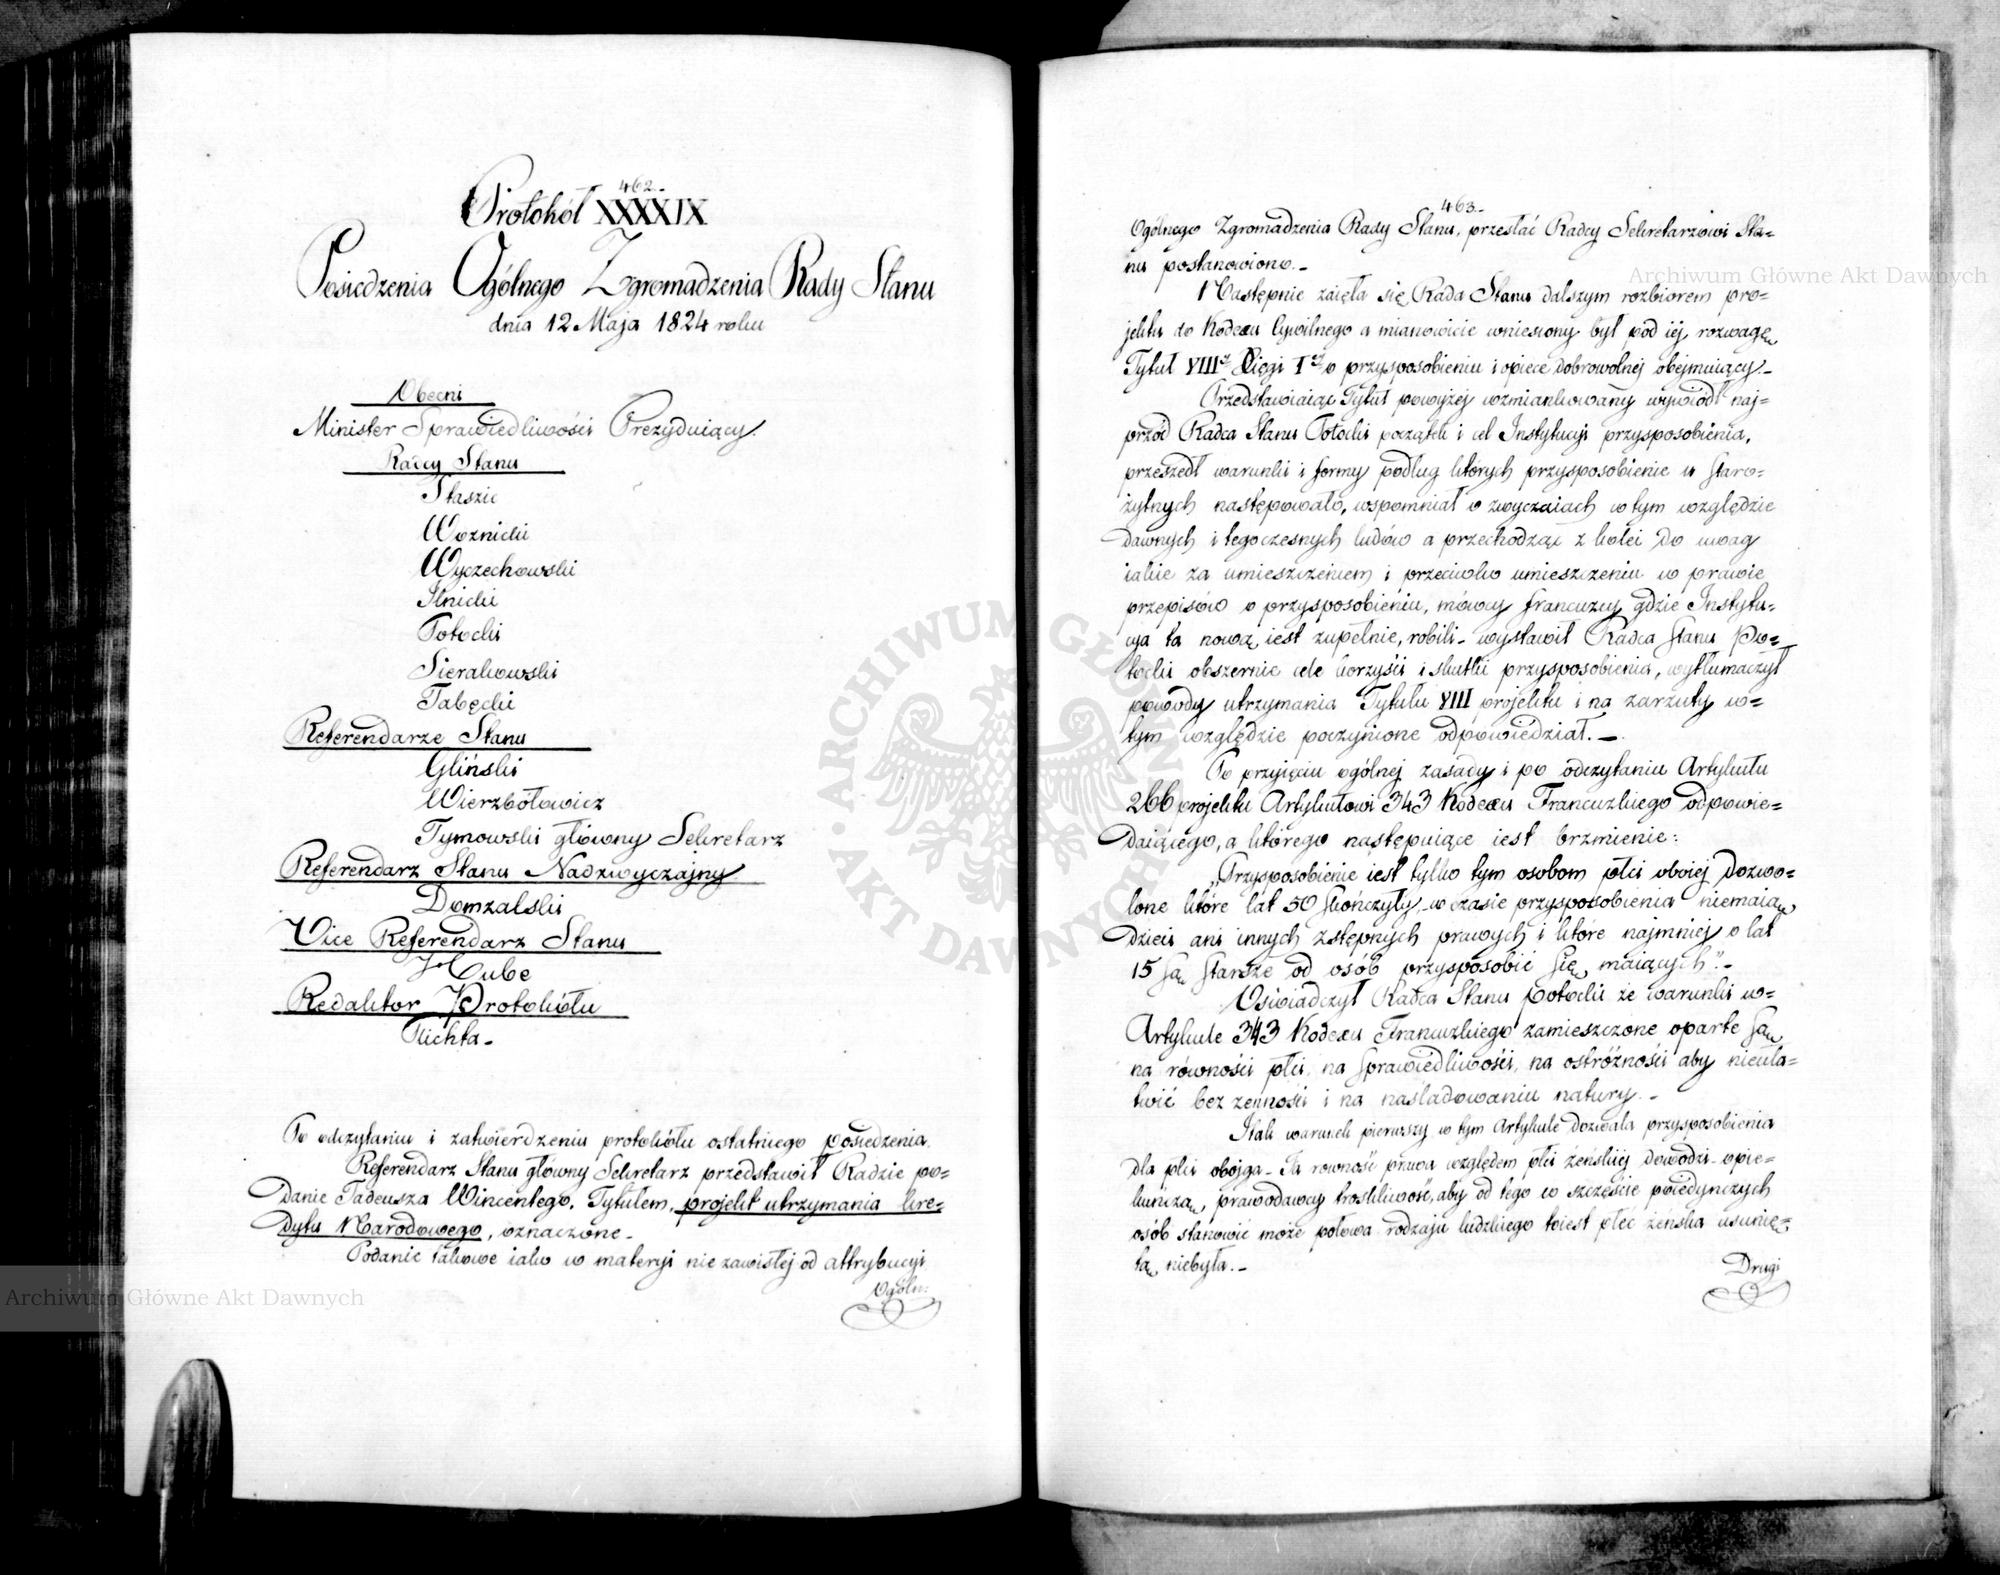 462.
Protokół XXXXIX
Posiedzenia Ogólnego Zgromadzenia Rady Stanu
dnia 12 Maja 1824 roku
Obecni
Minister Sprawiedliwości Prezyduiący.
Radcy Stanu
Staszic
Woznicki
Wyczechowski
Ilnicki
Potocki
Sierakowski
Tabęcki
Referendarze Stanu
Gliński
Wierzbołowicz
Tymowski główny Sekretarz
Referendarz Stanu Nadzwyczajny
Domzalski
Vice Referendarz Stanu
Hube
Redaktor Protokółu
Plichta -
Po odczytaniu i zatwierdzeniu protokółu ostatniego posiedzenia.
Referendarz Stanu główny Sekretarz przedstawił Radzie po=
danie Tadeusza Wincentego. Tytułem, projekt utrzymania kre=
dytu Narodowego, oznaczone -
Podanie takowe iako w materyi nie zawisłej od attrybucyi
Ogóln:
463.-
Ogólnego Zgromadzenia Rady Stanu, przesłać Radcy Sekretarzowi Sta=
nu postanowiono. -
Następnie zaięła się Rada Stanu dalszym rozbiorem pro=
jektu do Kodexu Cywilnego a mianowicie wniesiony był pod iéj rozwagę
Tytuł VIII Xięgi I o przysposobieniu i opiece dobrowolnej obejmuiący -
Przedstawiaiąc Tytuł powyżej wzmiankowany wywiódł naj=
przód Radca Stanu Potocki początek i cel Instytucyi przysposobienia,
przeszedł warunki i formy podług których przysposobienie u Staro=
żytnych następowało, wspomniał o zwyczaiach w tym względzie
dawnych i tegoczesnych ludów a przechodząc z kolei do uwag
iakie za umieszczeniem i przeciwko umieszczeniu w prawie
przepisów o przysposobieniu, mówcy francuzcy gdzie Instytu=
cya ta nową iest zupełnie, robili - wystawił Radca Stanu Po=
tocki obszernie cele korzyści i skutki przysposobienia, wytłumaczył
powody utrzymania Tytułu VIII projektu i na zarzuty w=
tym względzie poczynione odpowiedział. -
Po przyięciu ogólnej zasady i po odczytaniu Artykułu
266 projektu Artykułowi 343 Kodexu Francuzkiego odpowie=
daiącego, a którego następuiące iest brzmienie:
„Przysposobienie iest tylko tym osobom płci obojej dozwo=
lone które lat 50 skończyły, w czasie przysposobienia niemaią
dzieci ani innych zstępnych prawych i które najmniej o lat
15 są starsze od osób przysposobić się maiących". -
Oświadczył Radca Stanu Potocki że warunki w=
Artykule 343 Kodexu Francuzkiego zamieszczone oparte są
na równości płci, na sprawiedliwości, na ostróżności aby nieuła=
twić bezżenności i na naśladowaniu natury. -
Itak warunek pierwszy w tym Artykule dozwala przysposobienia
dla płci obojga - Ta równość prawa względem płci żeńskiéj dowodzi opie=
kuńczą, prawodawcy troskliwość, aby od tego co szczęście poiedynczych
osób stanowić może połowa rodzaju ludzkiego toiest płeć żeńska usunię=
tą niebyła. -
Drugi
Archiwum Główne Akt Dawnych
Archiwum Główne Akt Dawnych
ARCHIWUM GŁÓWNE AKT DAWNYCH